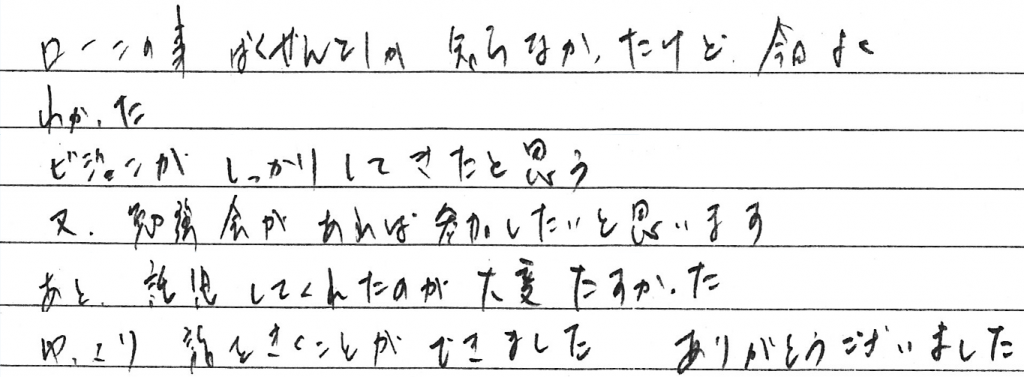 ローンの事 ばくぜんてしか 知らなかったけど、今日よく
わかった
ビジョンが しっかりしてきたと思う
又、勉強会が あれば参加したいと思います
あと、託児してくれたのが大変たすかった
ゆっくり 話をきくことができました ありがとうございました